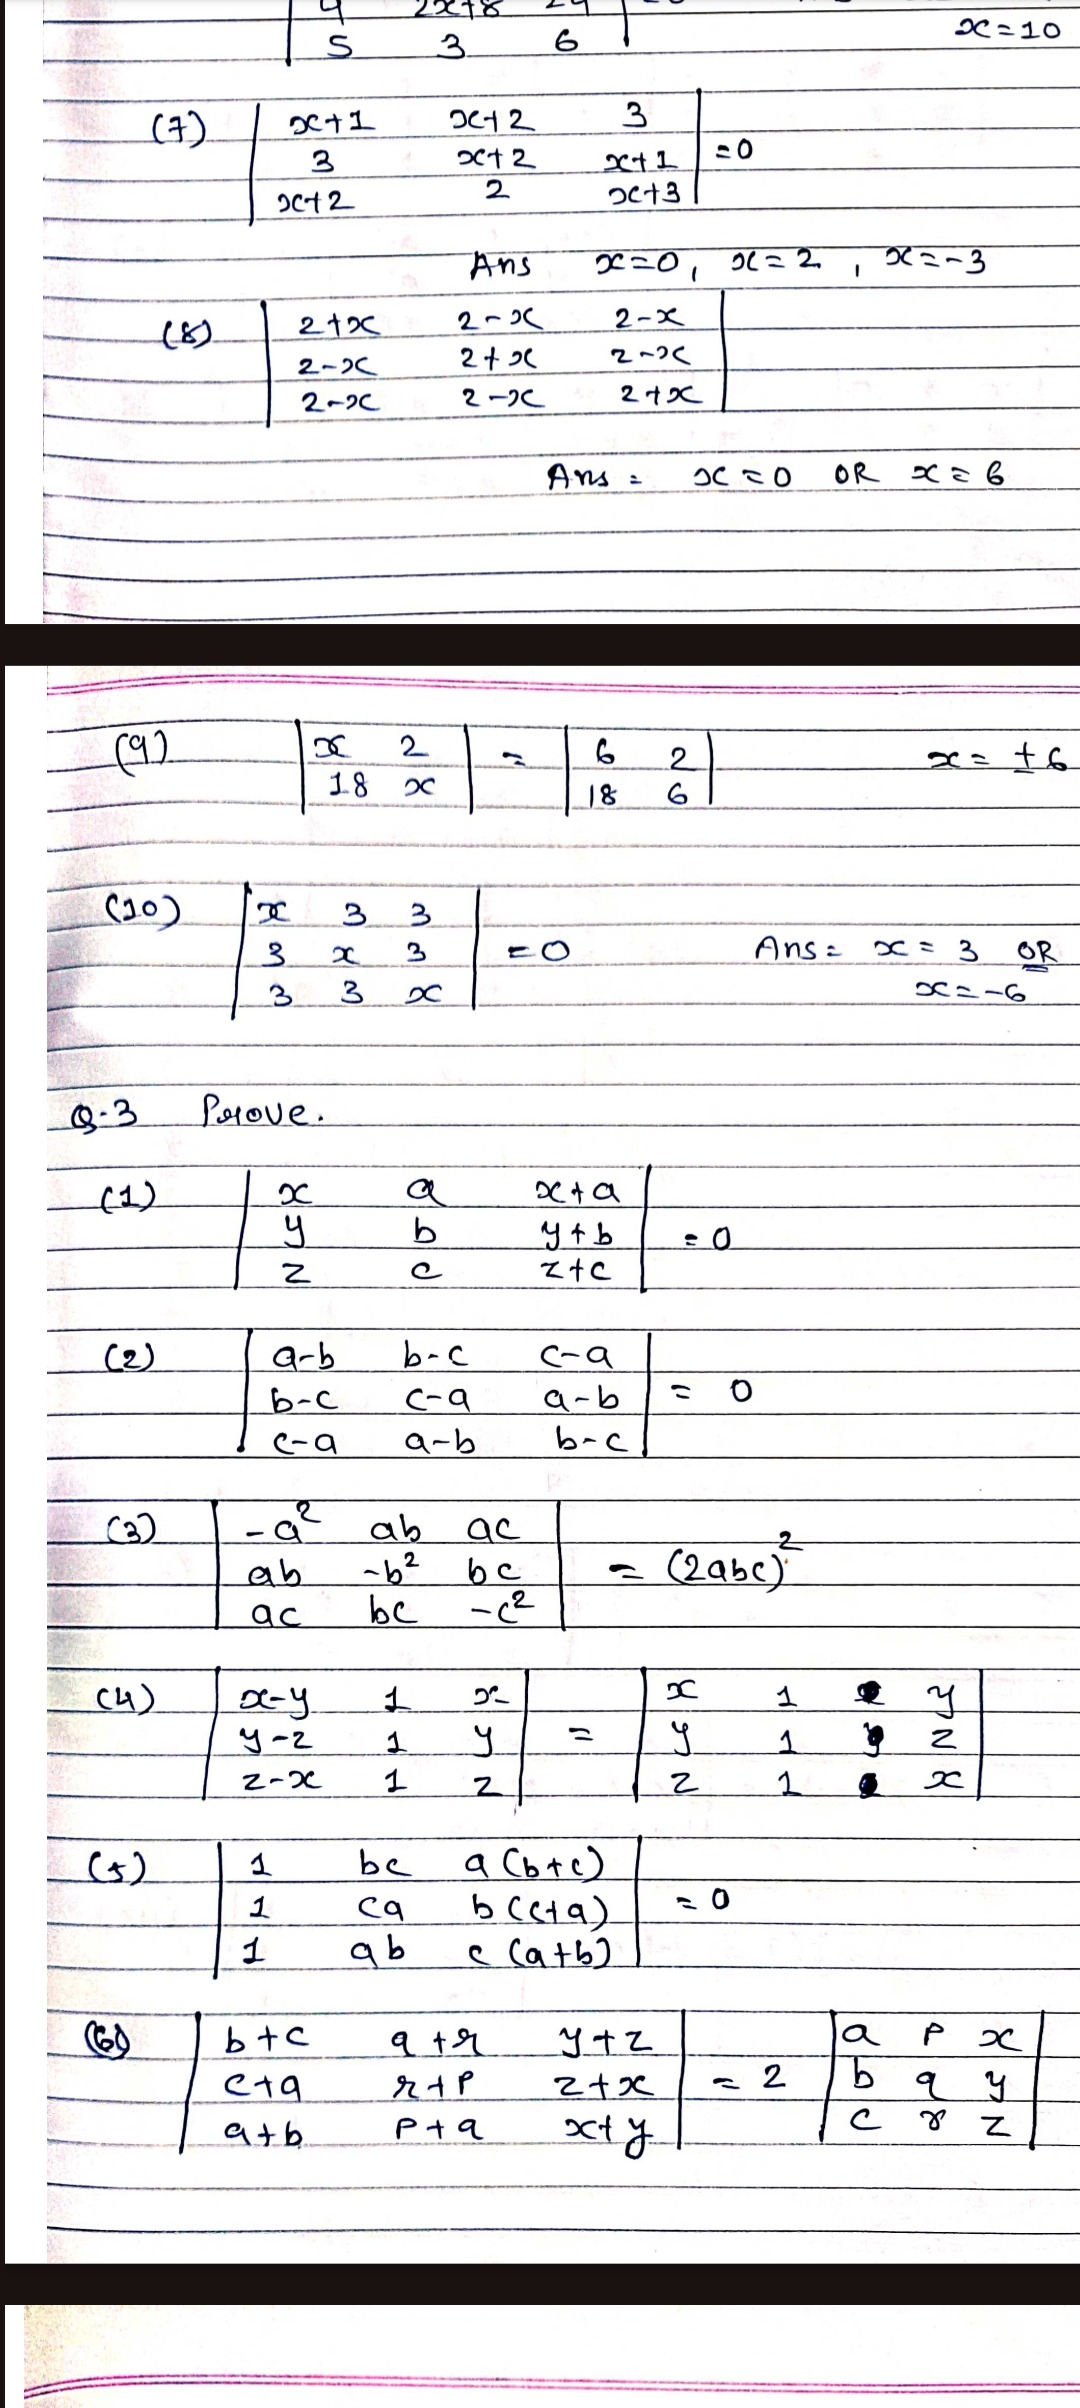 4 2x+8 24
5 3 6
x=10
(7) | x+1 x+2 3 |
| 3 x+2 x+1 | =0
| x+2 2 x+3 |
Ans x=0, x=2, x=-3
(8) | 2+x 2-x 2-x |
| 2-x 2+x 2-x |
| 2-x 2-x 2+x |
Ans = x=0 OR x=6
(9) | x 2 | = | 6 2 | x= ±6
| 18 x | | 18 6 |
(10) | x 3 3 |
| 3 x 3 | =0 Ans= x=3 OR
| 3 3 x | x=-6
Q-3 Prove.
(1) | x a x+a |
| y b y+b | =0
| z c z+c |
(2) | a-b b-c c-a |
| b-c c-a a-b | = 0
| c-a a-b b-c |
(3) | -a² ab ac |
| ab -b² bc | = (2abc)²
| ac bc -c² |
(4) | x-y 1 x | | x 1 y |
| y-z 1 y | = | y 1 z |
| z-x 1 z | | z 1 x |
(5) | 1 bc a(b+c) |
| 1 ca b(c+a) | =0
| 1 ab c(a+b) |
(6) | b+c q+r y+z | | a p x |
| c+a r+p z+x | = 2 | b q y |
| a+b p+q x+y | | c r z |